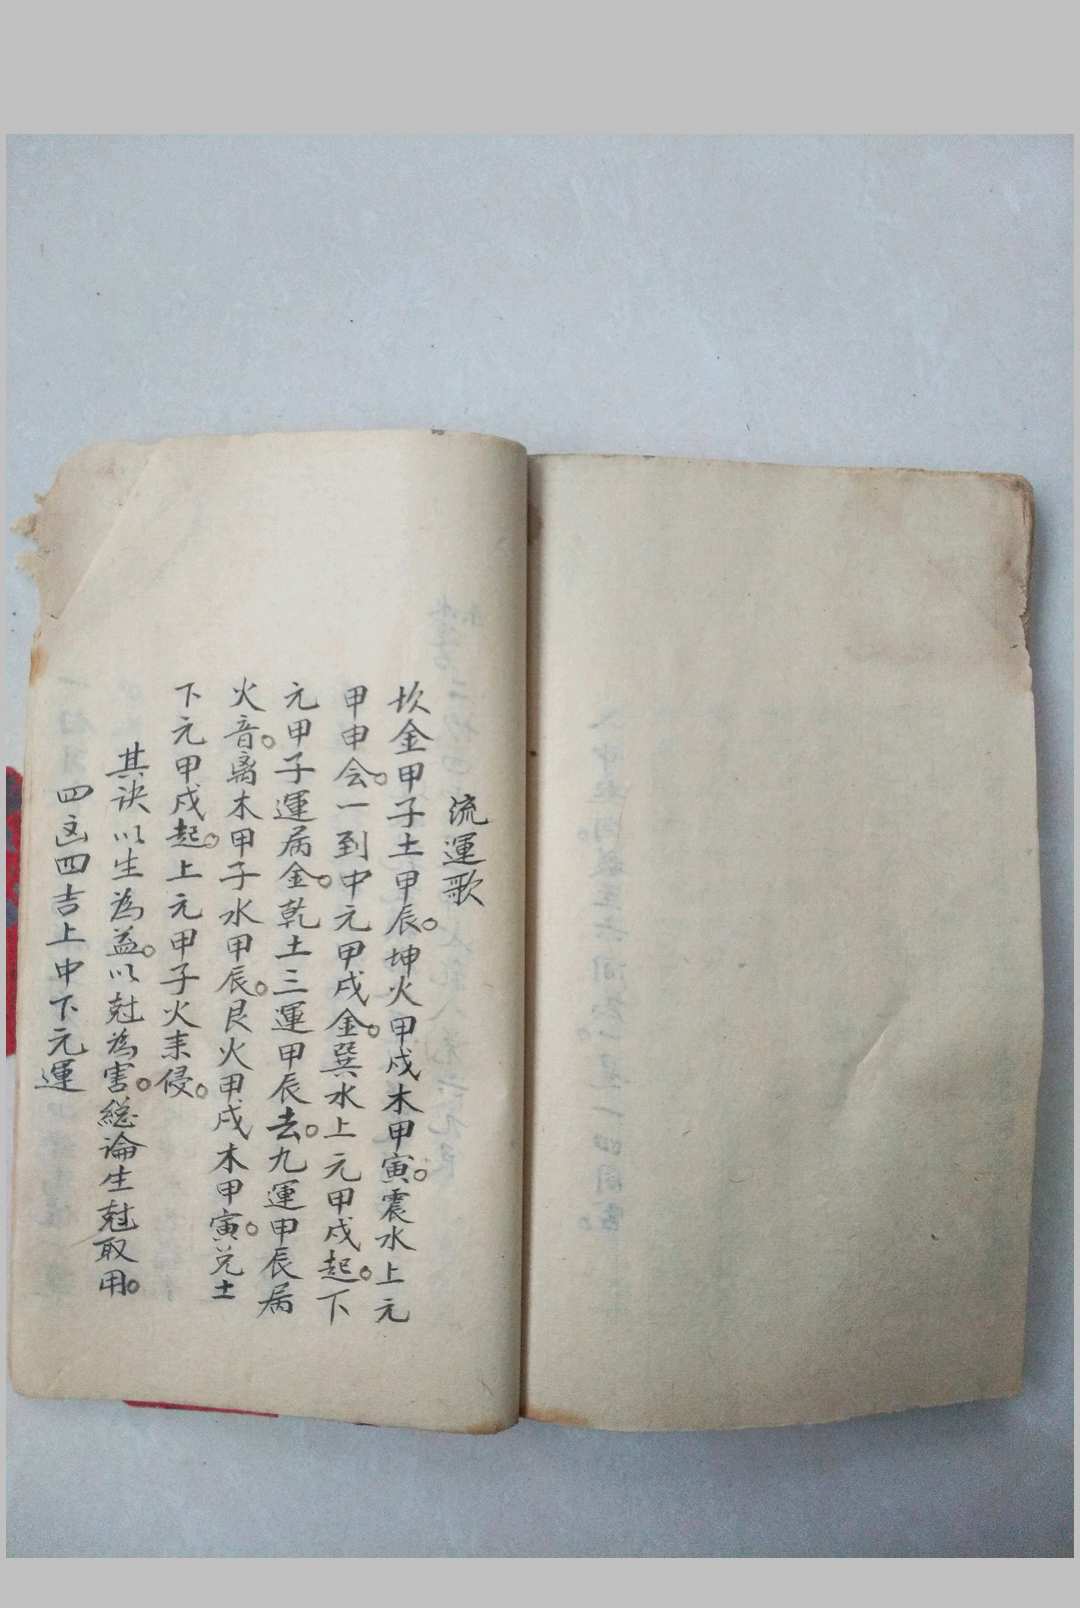 流運歌
坎金甲子土甲辰。坤火甲戍木甲寅。震水上元
甲申会。一到中元甲戍金。巽水上元甲戍起。下
元甲子運屬金。乾土三運甲辰去。九運甲辰屬
火音。离木甲子水甲辰。艮火甲戍木甲寅。兑土
下元甲戍起。上元甲子火来侵。
其诀以生為益。以尅為害。總論生尅取用。
四凶四吉上中下元運